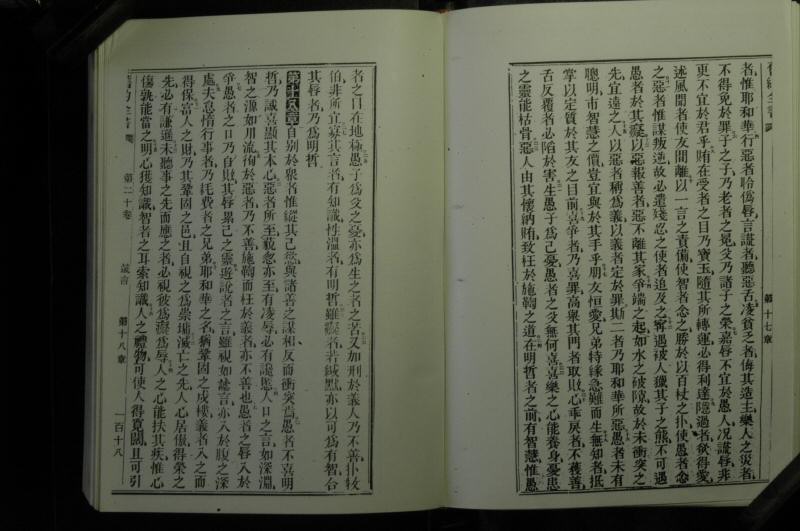 舊約全書
第十七章
者惟耶和華行惡者聆僞唇言謊者聽惡舌凌貧乏者侮其造主樂人之災者
不得免於罪子之子乃老者之冕父乃諸子之榮嘉唇不宜於愚人况謊唇非
更不宜於君乎賄在受者之目乃寶玉隨其所轉運必得利達隱過者欲得愛
述風聞者使友間離以一言之責備使智者念之勝於以百杖之仆使愚者念
之惡者惟謀叛逆故必遣殘忍之使者追及之寧遇被人獵其子之熊不可遇
愚者於其癡以惡報善者惡不離其家爭端之起如水之破隄故於未衝突之
先宜遠之人以惡者稱爲義以義者定於罪斯二者乃耶和華所惡愚者未有
聰明市智慧之價豈宜與於其手乎朋友恒愛兄弟特緣急難而生無知者抵
掌以定質於其友之目前喜爭者乃喜罪高舉其門者取敗心乖戾者不獲善
舌反覆者必陷於害生愚子爲己憂愚者之父無何喜喜樂之心能養身憂患
之靈能枯骨惡人由其懷納賄致枉於施鞫之道在明哲者之前有智慧惟愚
者之目在地極愚子爲父之憂亦爲生之者之苦又加刑於義人乃不善仆牧
伯非所宜寡其言者有知識性溫者有明哲雖癡者若緘默亦以可爲有智合
其唇者乃爲明哲
第十八章自别於衆者惟縱其己慾與諸善之謀相反而衝突焉愚者不喜明
哲乃誠喜顯其本心惡者所至藐忽亦至有凌辱必有譏慝人口之言如深淵
智之源如川流徇於惡者乃不善施鞫而枉於義者亦不善也愚者之唇入於
爭愚者之口乃自敗其唇累己之靈遊說者之言雖視如謔言亦入於腹之深
處夫怠惰行事者乃耗費者之兄弟耶和華之名猶鞏固之戍樓義者入之而
得保富人之財乃其鞏固之邑且自視之爲崇墉滅亡之先人心居傲得榮之
先必有謙遜未聽事之先而應之者必視彼爲癡爲辱人之心能扶其疾惟心
傷孰能當之明心獲知識智者之耳索知識人之禮物可使人得寬闊且可引
第二十卷
箴言
第十八章
一百十八